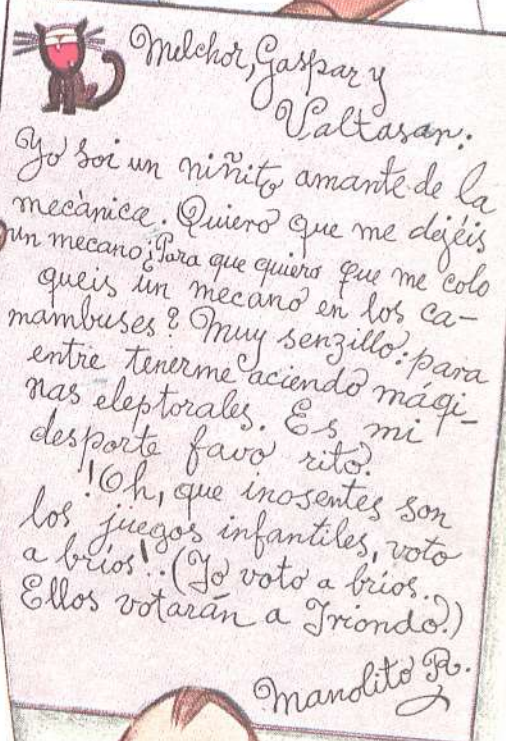 Melchor, Gaspar y
Valtasar.
Yo soi un niñito amante de la
mecànica. Quiero que me dejéis
un mecano ¿Para que quiero que me colo
queis un mecano en los ca-
mambuses? Muy senzillo: para
entre tenerme aciendo mági-
nas eleptorales. Es mi
desporte favo rito.
!Oh, que inosentes son
los juegos infantiles, voto
a bríos!..(Yo voto a bríos.
Ellos votarán a Iriondo.)
Manolito R.